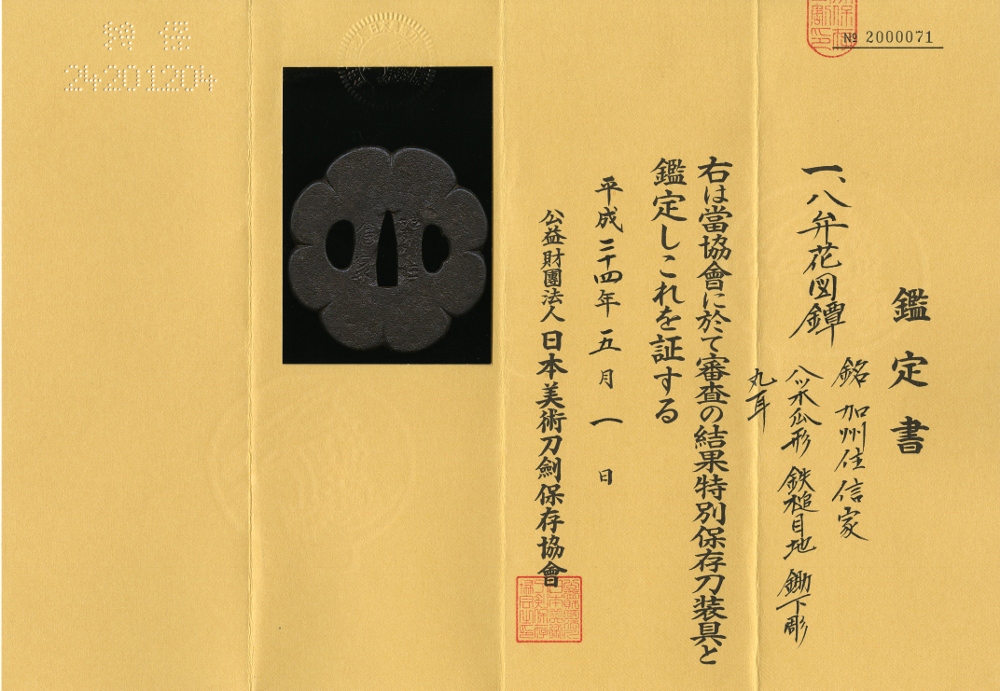 № 2000071
鑑定書
一、八弁花図鐔
銘 加州住信家
八ツ木瓜形 鉄槌目地 鋤下彫
丸耳
右は當協會に於て審査の結果特別保存刀装具と
鑑定しこれを証する
平成二十四年 五月 一日
公益財團法人 日本美術刀劍保存協會
特 保
24201204